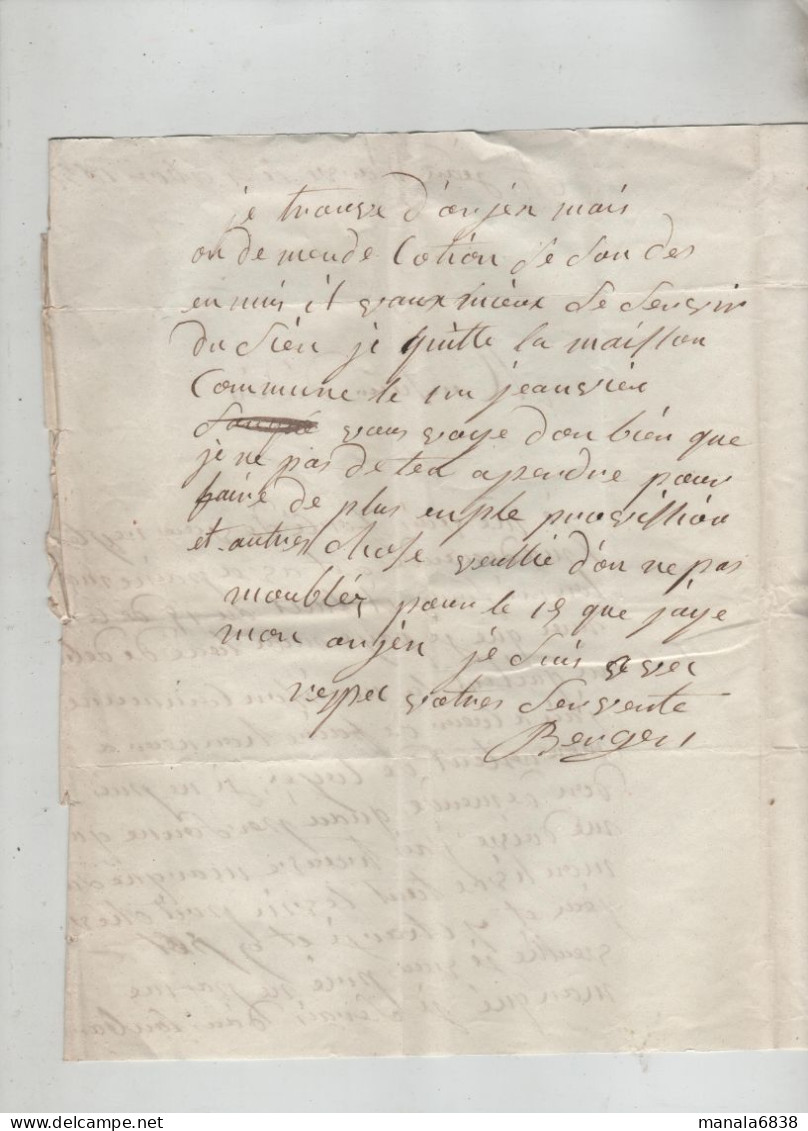 je trouve d'arjen mais
on de mende Cotion de don des
en nuis it vaux mieux de servir
du Sien je quitte la maison
Commune le 1er jeanvier
vous voye don bien que
je ne pas de ten a perdre pour
faire de plus enple provission
et autres Chose veullie don ne pas
moublér pour le 15 que jaye
mon arjen je suis avec
respec votres servente
Berger
manala6838